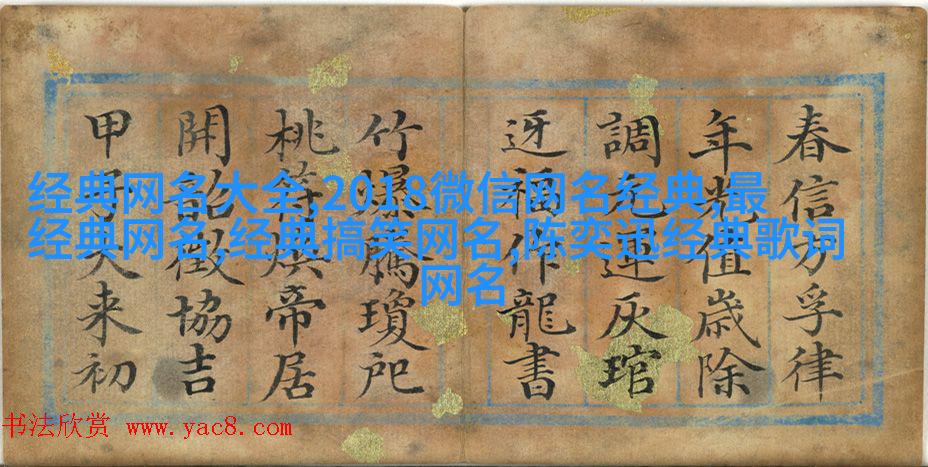 春信方孚律
年光值歲除
調元連灰琯
迓福作龍書
竹爆騰瓊戺
桃符煥帝居
開韶徵協吉
甲子来初
经典网名大全,2018微信网名经典,最
经典网名,经典搞笑网名,陈奕迅经典歌词
网名
书法欣赏 www.yac8.com